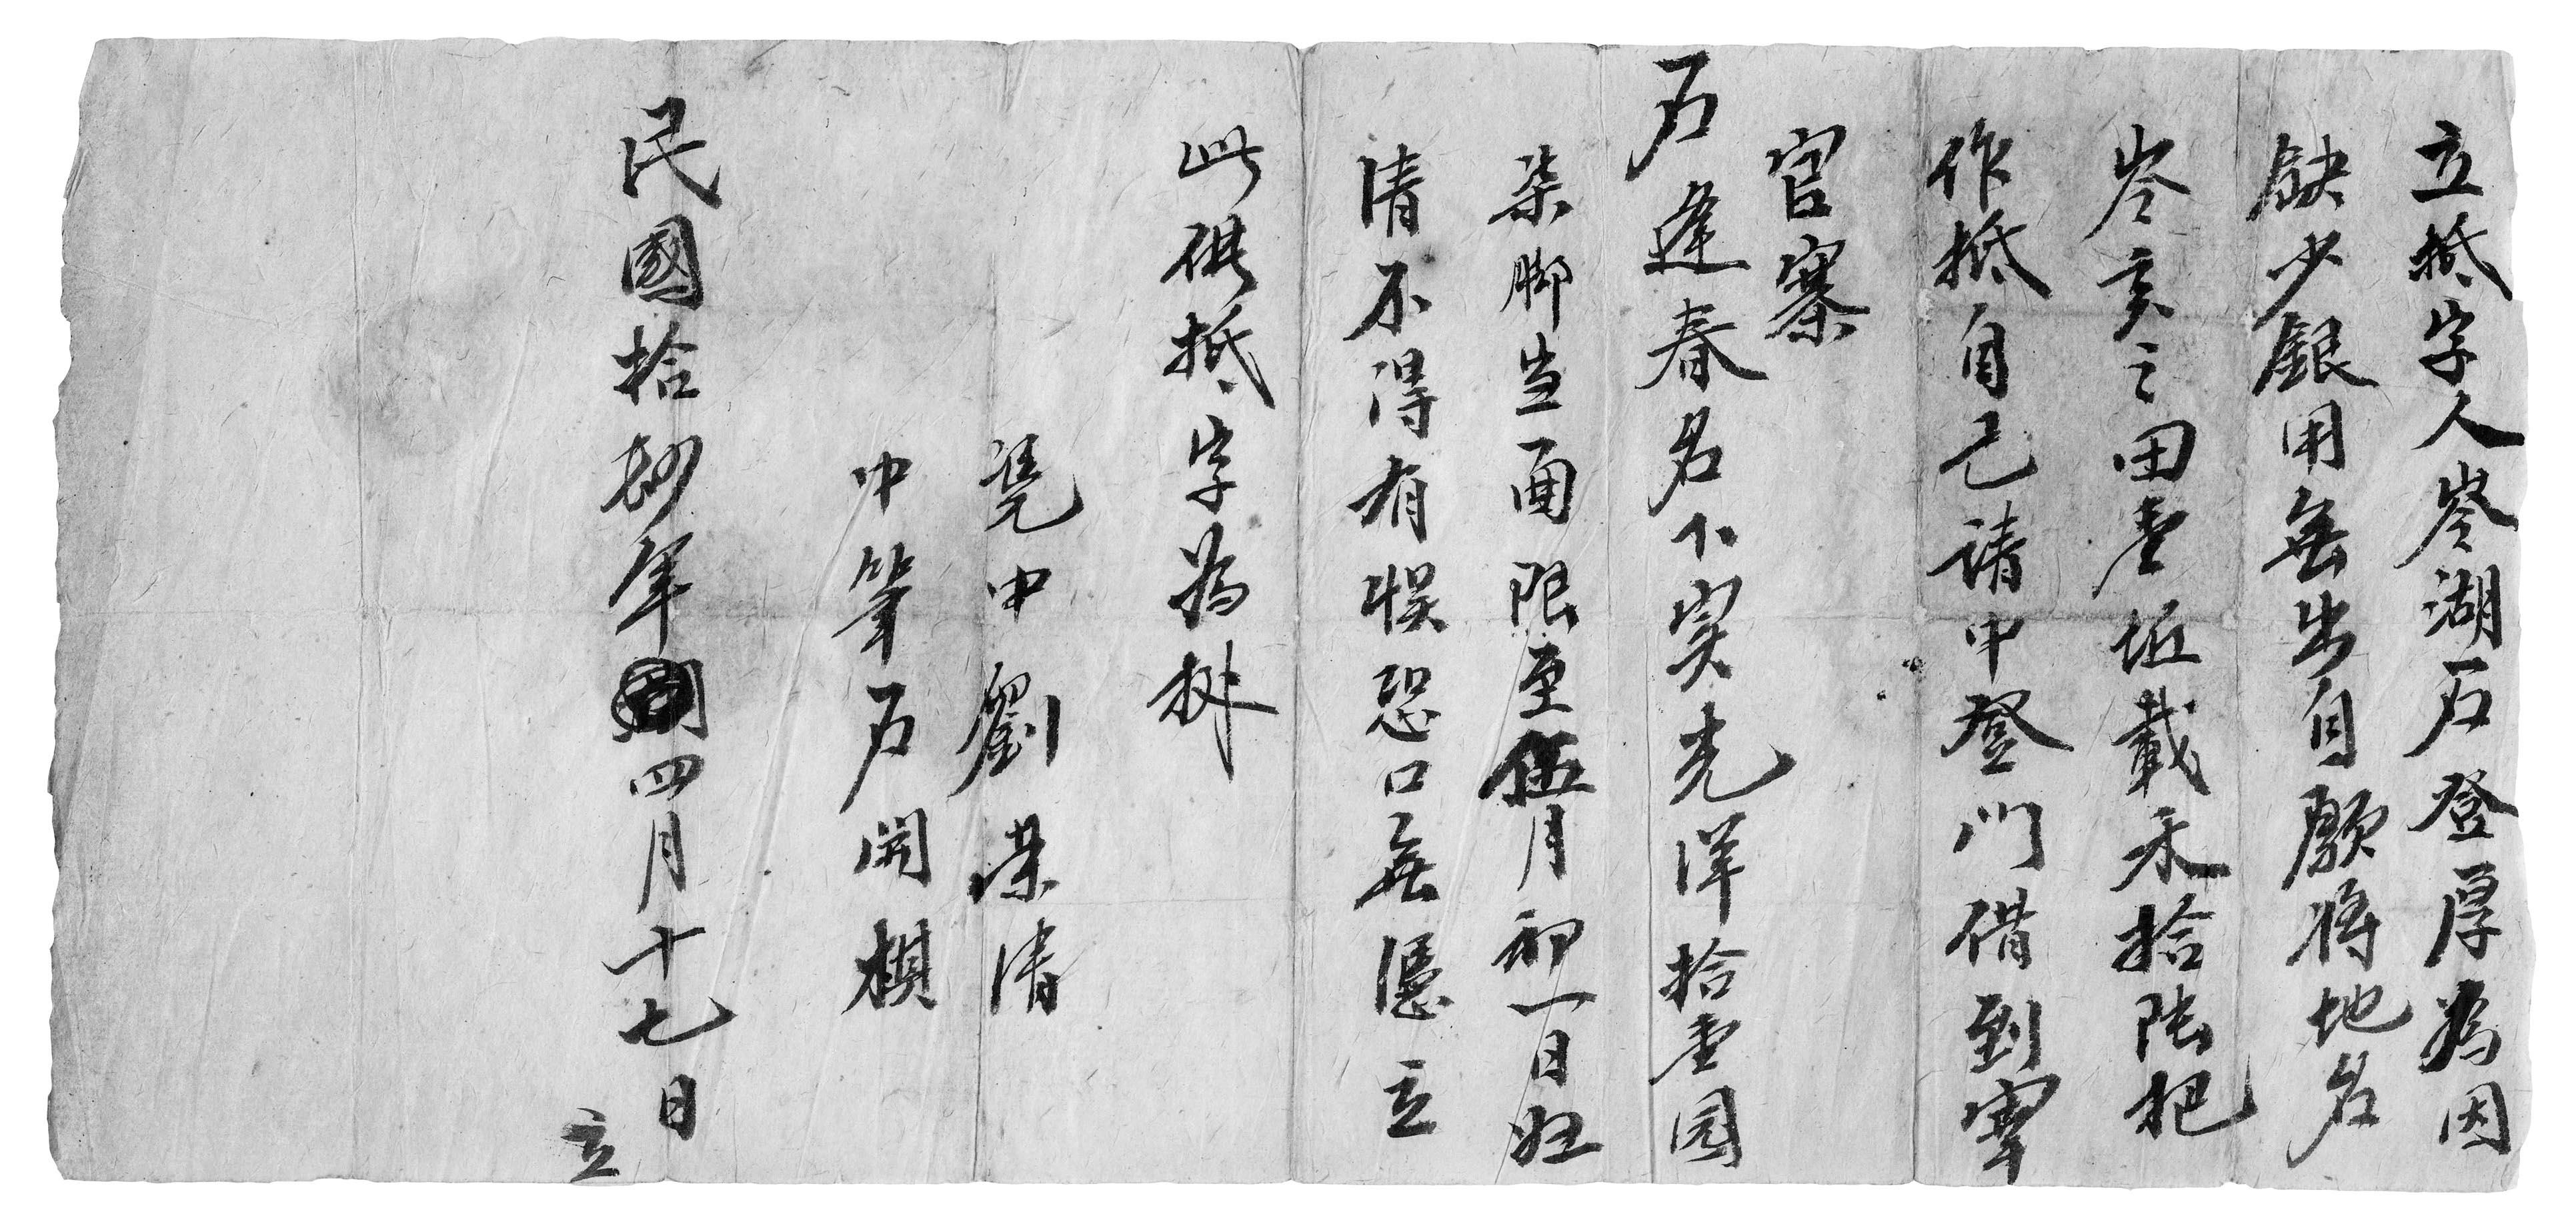 立抵字人岑湖石登厚為因
缺少銀用無出自願將地名
岑亥之田壹坵載禾拾陸把
作抵自己請中登門借到
官寨
石逢春名下实光洋拾壹园
柒脚当面限至伍月初一日归
清不得有悞恐口無憑立
此供抵字為㨿
凭中劉荣清
中筆石開楨
民國拾年四月十七日
立